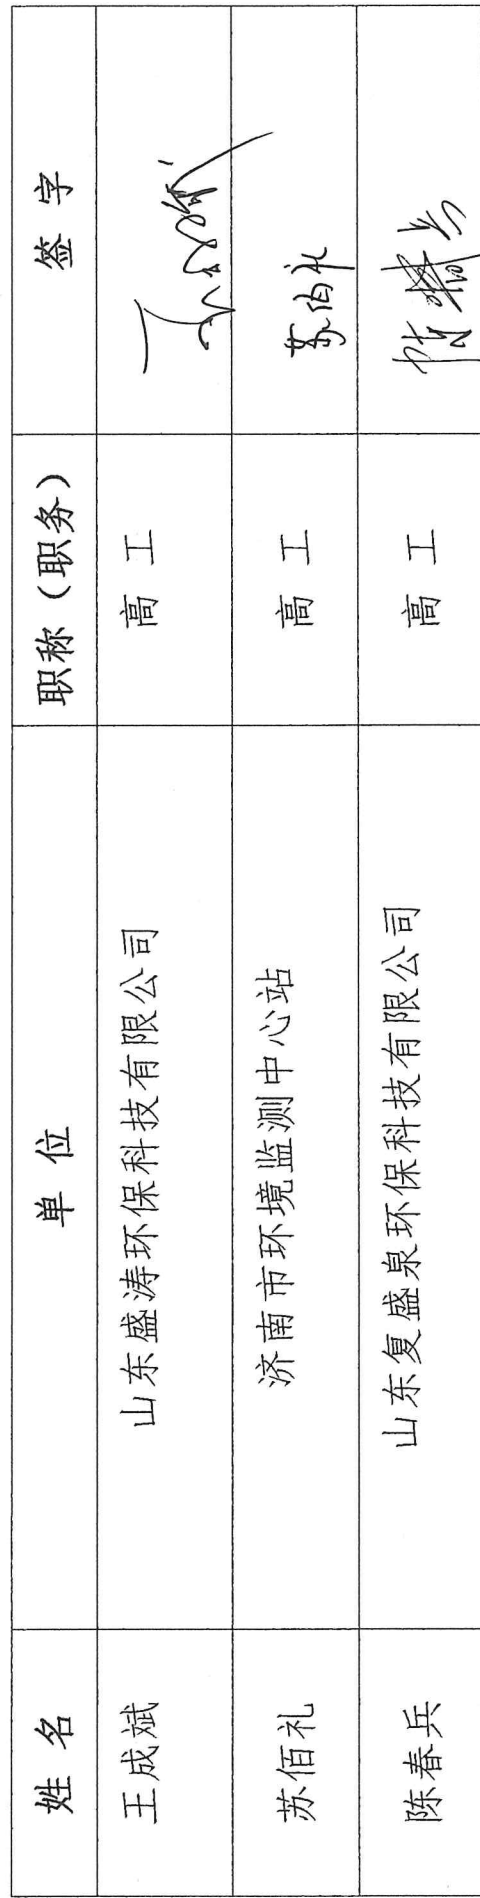 姓 名 单 位 职称（职务） 签 字
王成斌 山东盛涛环保科技有限公司 高 工
苏佰礼 济南市环境监测中心站 高 工 苏佰礼
陈春兵 山东复盛泉环保科技有限公司 高 工